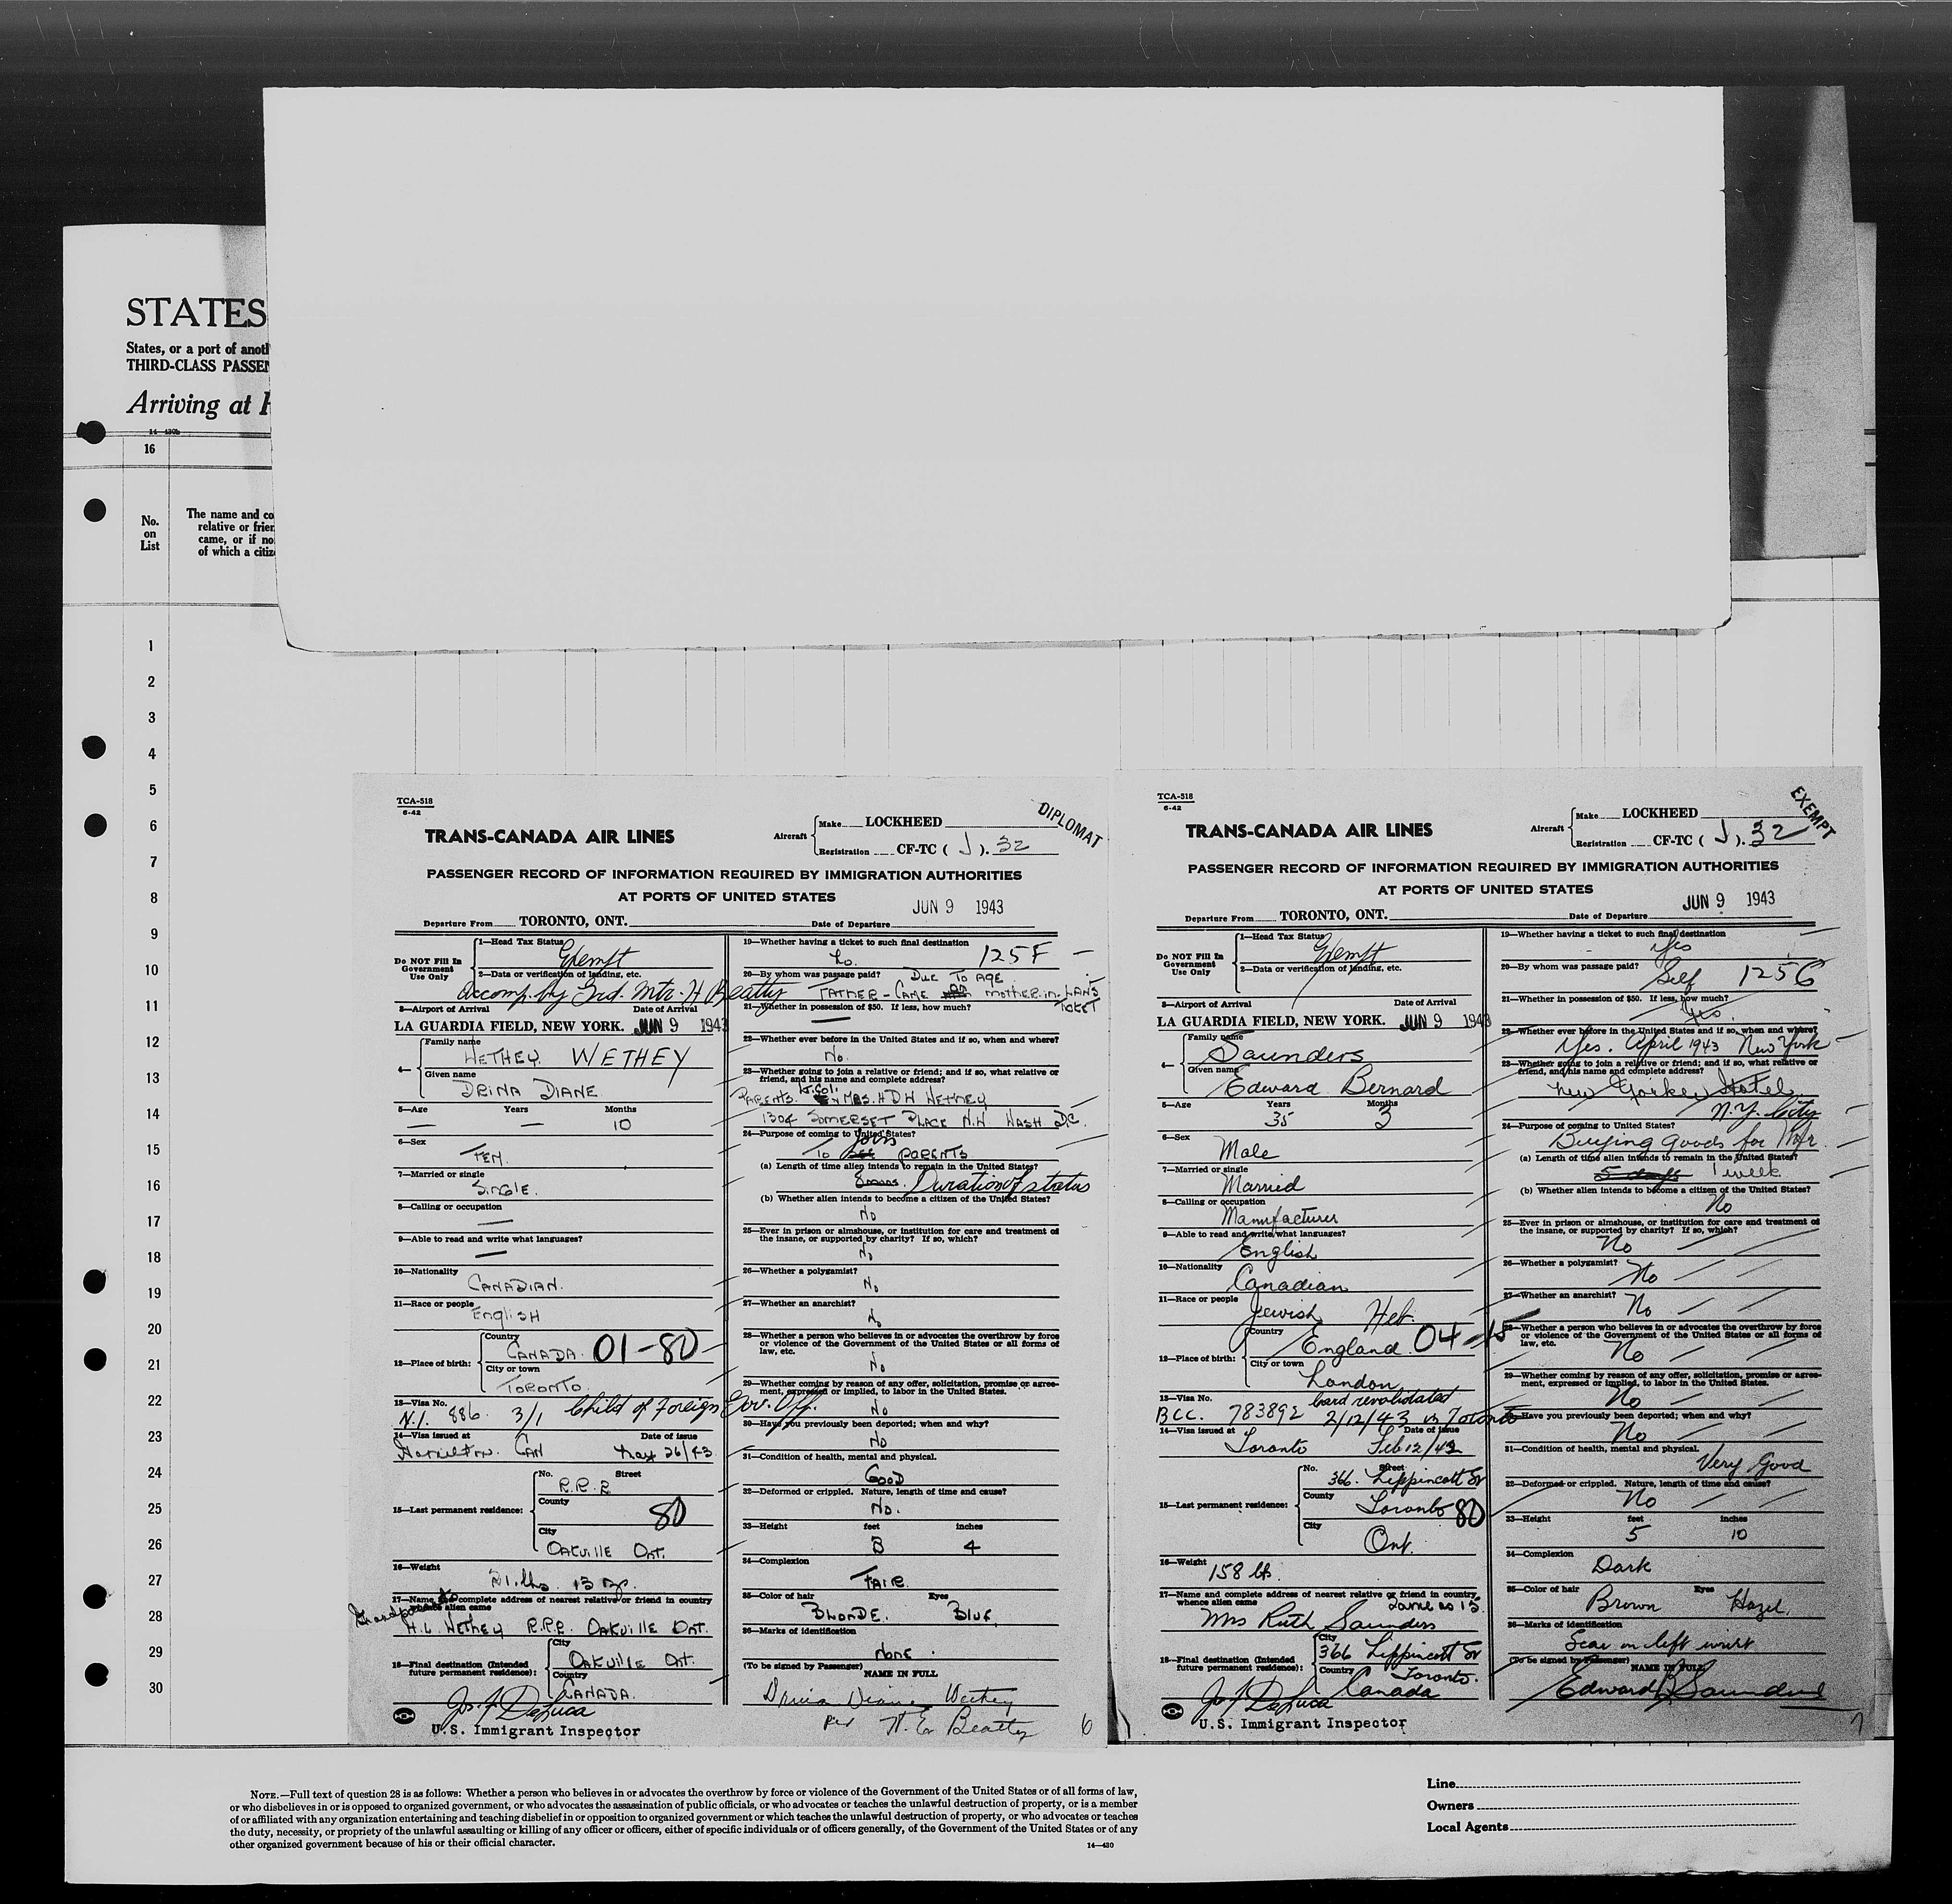 STATES
States, or a port of anoth
THIRD-CLASS PASSEN
Arriving at
14—430b
16
No.
on
List
The name and co
relative or frien
came, or if no
of which a citiz
1
2
3
4
5
6
7
8
9
10
11
12
13
14
15
16
17
18
19
20
21
22
23
24
25
26
27
28
29
30
TCA-518
6-42
DIPLOMAT
TRANS-CANADA AIR LINES
Aircraft
Make LOCKHEED
Registration CF-TC ( J ). 32
PASSENGER RECORD OF INFORMATION REQUIRED BY IMMIGRATION AUTHORITIES
AT PORTS OF UNITED STATES
JUN 9 1943
Departure From TORONTO, ONT. Date of Departure
Do NOT Fill In
Government
Use Only
1—Head Tax Status Exempt
2—Data or verification of landing, etc.
accomp. by Grd. Mtr. H Beatty
3—Airport of Arrival Date of Arrival
LA GUARDIA FIELD, NEW YORK. JUN 9 1943
4—
Family name
WETHEY. WETHEY
Given name
DRINA DIANE
5—Age Years Months
— — 10
6—Sex
FEM.
7—Married or single
SINGLE.
8—Calling or occupation
—
9—Able to read and write what languages?
—
10—Nationality
CANADIAN.
11—Race or people
English
12—Place of birth:
Country
CANADA. 01-80
City or town
TORONTO
13—Visa No.
N.I. 886. 3/1 Child of Foreign Gov. Off.
14—Visa issued at Date of issue
Hamilton. CAN May 26/43
15—Last permanent residence:
No. Street
R.R.2
County
80
City
OAKVILLE ONT.
16—Weight
21 lbs. 13 oz.
17—Name and complete address of nearest relative or friend in country
whence alien came
Grandparents
H.L. WETHEY R.R.2. OAKVILLE ONT.
18—Final destination (Intended
future permanent residence):
City
OAKVILLE ONT.
Country
CANADA.
Jos. F. DeLuca
U.S. Immigrant Inspector
19—Whether having a ticket to such final destination
No. 125F —
20—By whom was passage paid? DUE TO AGE
FATHER - CAME ON MOTHER-IN-LAW'S
TICKET
21—Whether in possession of $50. If less, how much?
—
22—Whether ever before in the United States and if so, when and where?
No.
23—Whether going to join a relative or friend; and if so, what relative or
friend, and his name and complete address?
Lt. Col.
PARENTS. & MRS. H D W WETHEY
1304 SOMERSET PLACE N.W. WASH D.C.
24—Purpose of coming to United States?
join
TO SEE PARENTS
(a) Length of time alien intends to remain in the United States?
Duration of status
(b) Whether alien intends to become a citizen of the United States?
No
25—Ever in prison or almshouse, or institution for care and treatment of
the insane, or supported by charity? If so, which?
No
26—Whether a polygamist?
No
27—Whether an anarchist?
No
28—Whether a person who believes in or advocates the overthrow by force
or violence of the Government of the United States or all forms of
law, etc.
No
29—Whether coming by reason of any offer, solicitation, promise or agree-
ment, expressed or implied, to labor in the United States.
No
30—Have you previously been deported; when and why?
No
31—Condition of health, mental and physical.
GOOD
32—Deformed or crippled. Nature, length of time and cause?
No.
33—Height feet inches
3 4
34—Complexion
FAIR.
35—Color of hair Eyes
BLONDE. BLUE.
36—Marks of identification
NONE.
(To be signed by Passenger) NAME IN FULL
Drina Diane Wethey
per H. E. Beatty
6
TCA-518
6-42
EXEMPT
TRANS-CANADA AIR LINES
Aircraft
Make LOCKHEED
Registration CF-TC ( J ). 32
PASSENGER RECORD OF INFORMATION REQUIRED BY IMMIGRATION AUTHORITIES
AT PORTS OF UNITED STATES
JUN 9 1943
Departure From TORONTO, ONT. Date of Departure
Do NOT Fill In
Government
Use Only
1—Head Tax Status Exempt
2—Data or verification of landing, etc.
3—Airport of Arrival Date of Arrival
LA GUARDIA FIELD, NEW YORK. JUN 9 1943
4—
Family name
Saunders
Given name
Edward Bernard
5—Age Years Months
35 3
6—Sex
Male
7—Married or single
Married
8—Calling or occupation
Manufacturer
9—Able to read and write what languages?
English
10—Nationality
Canadian
11—Race or people
Jewish Heb.
12—Place of birth:
Country
England. 04-15
City or town
London
13—Visa No. card revalidated
BCC. 783892 2/12/43 in Toronto
14—Visa issued at Date of issue
Toronto Feb 12/42
15—Last permanent residence:
No. Street
366. Lippincott St
County
Toronto 80
City
Ont.
16—Weight
158 lb.
17—Name and complete address of nearest relative or friend in country
whence alien came Same as 15
Mrs Ruth Saunders
18—Final destination (Intended
future permanent residence):
City
366 Lippincott St
Toronto.
Country
Canada
Jos. F. DeLuca
U.S. Immigrant Inspector
19—Whether having a ticket to such final destination
Yes
20—By whom was passage paid?
Self 125G
21—Whether in possession of $50. If less, how much?
Yes.
22—Whether ever before in the United States and if so, when and where?
Yes. April 1943 New York
23—Whether going to join a relative or friend; and if so, what relative or
friend, and his name and complete address?
New Yorker Hotel
N.Y. City
24—Purpose of coming to United States?
Buying goods for Mfr.
(a) Length of time alien intends to remain in the United States?
5 days 1 week
(b) Whether alien intends to become a citizen of the United States?
No
25—Ever in prison or almshouse, or institution for care and treatment of
the insane, or supported by charity? If so, which?
No
26—Whether a polygamist?
No
27—Whether an anarchist?
No
28—Whether a person who believes in or advocates the overthrow by force
or violence of the Government of the United States or all forms of
law, etc.
No
29—Whether coming by reason of any offer, solicitation, promise or agree-
ment, expressed or implied, to labor in the United States.
No
30—Have you previously been deported; when and why?
No
31—Condition of health, mental and physical.
Very Good
32—Deformed or crippled. Nature, length of time and cause?
No
33—Height feet inches
5 10
34—Complexion
Dark
35—Color of hair Eyes
Brown Hazel.
36—Marks of identification
Scar on left wrist
(To be signed by Passenger) NAME IN FULL
Edward B Saunders
7
NOTE.—Full text of question 28 is as follows: Whether a person who believes in or advocates the overthrow by force or violence of the Government of the United States or of all forms of law,
or who disbelieves in or is opposed to organized government, or who advocates the assassination of public officials, or who advocates or teaches the unlawful destruction of property, or is a member
of or affiliated with any organization entertaining and teaching disbelief in or opposition to organized government or which teaches the unlawful destruction of property, or who advocates or teaches
the duty, necessity, or propriety of the unlawful assaulting or killing of any officer or officers, either of specific individuals or of officers generally, of the Government of the United States or of any
other organized government because of his or their official character.
14—430
Line
Owners
Local Agents